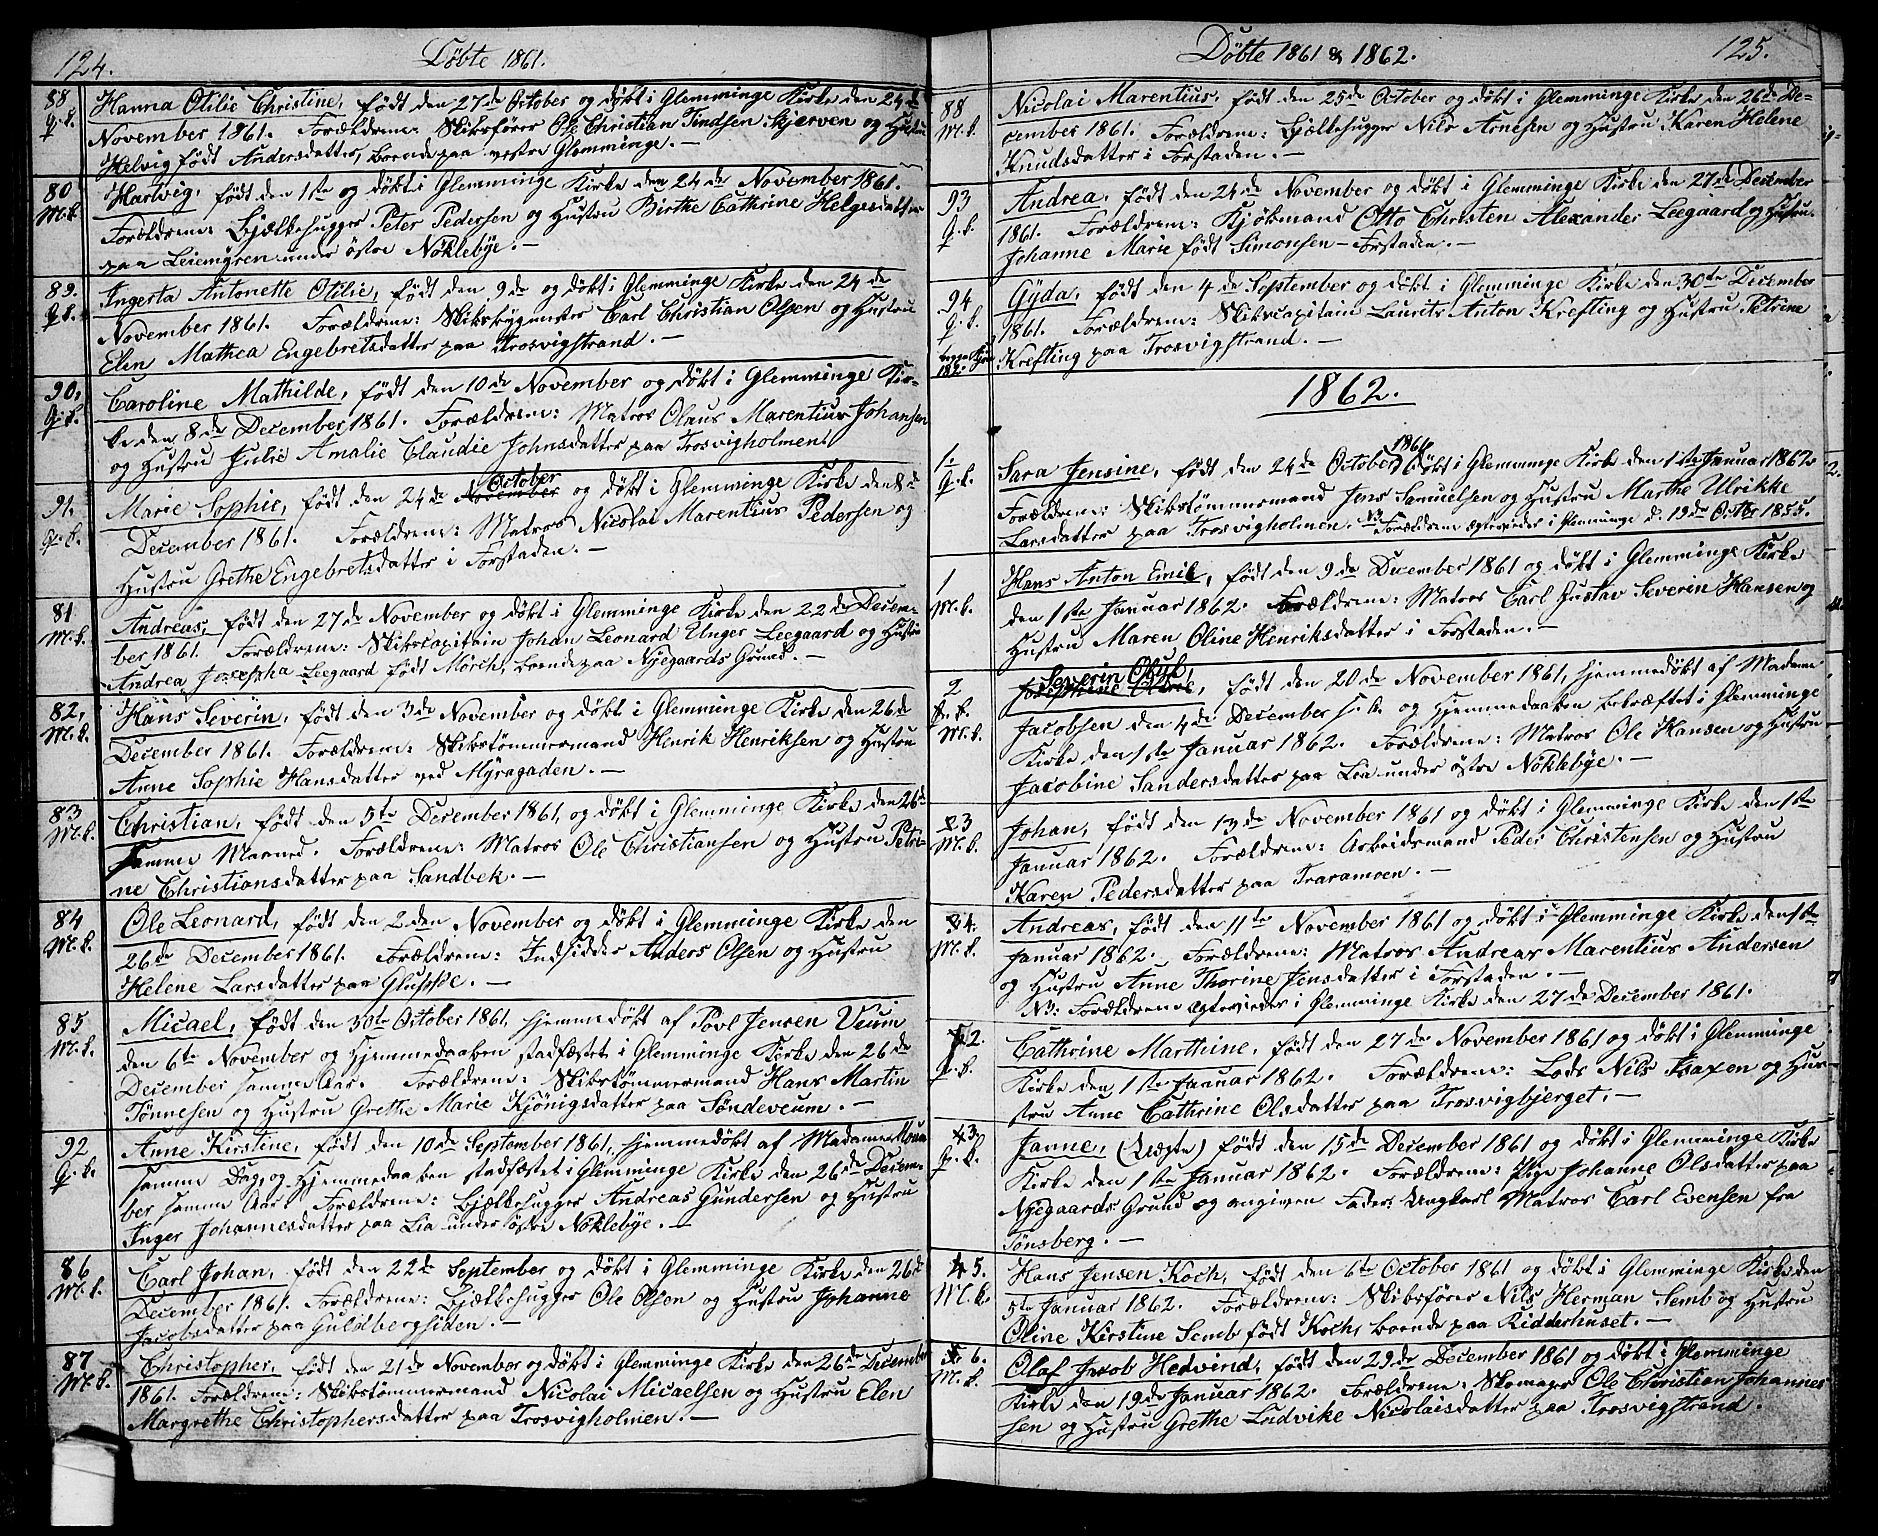 124.
Döbte 1861.
88 Hanna Otilie Christine, födt den 27de October og döbt i Glemminge Kirke den 24de
Q.k. November 1861. Forældrene: Skibsförer Ole Christian Tindsen Kjerven og Hustru
Helvig födt Andersdatter, boende paa vestre Glemminge. —
80 Hartvig, födt den 1ste og döbt i Glemminge Kirke den 24de November 1861.
M.k. Forældrene: Bjælkehugger Peter Pedersen og Hustru Birthe Cathrine Helgesdatter
paa Leiemyren under östre Nöklebye. —
89. Ingerta Antonette Otilie, födt den 9de og döbt i Glemminge Kirke den 24de
Q.k. November 1861. Forældrene: Skibsbygmester Carl Christian Olsen og Hustru
Elen Mathea Engebretsdatter paa Trosvigstrand. —
90, Caroline Mathilde, födt den 10de November og döbt i Glemminge Kir-
Q.k. ke den 8de December 1861. Forældrene: Matros Olaus Marentius Johansen
og Hustru Julie Amalie Claudie Johnsdatter paa Trosvigholmen.
October
91. Marie Sophie, födt den 24de November og döbt i Glemminge Kirke den 8de
Q.k. December 1861. Forældrene: Matros Nicolai Marentius Pedersen og
Hustru Grethe Engebretsdatter i Forstaden. —
81 Andreas, födt den 27de November og döbt i Glemminge Kirke den 22de Decem-
M.k. ber 1861. Forældrene: Skibscapitain Johan Leonard Unger Leegaard og Hustru
Andrea Josepha Leegaard födt Mörch, boende paa Nyegaards Grund. —
82, Hans Severin, födt den 3de November og döbt i Glemminge Kirke den 26de
M.k. December 1861. Forældrene: Skibstömmermand Henrik Henriksen og Hustru
Anne Sophie Hansdatter ved Myragaden. —
83 Christian, födt den 5te December 1861, og döbt i Glemminge Kirke den 26de
M.k. samme Maaned. Forældrene: Matros Ole Christiansen og Hustru Petri-
ne Christiansdatter paa Sandbek. —
84 Ole Leonard, födt den 2den November og döbt i Glemminge Kirke den
M.k. 26de December 1861. Forældrene: Indsidder Anders Olsen og Hustru
Helene Larsdatter paa Glupsöe. —
85 Micael, födt den 30te October 1861, hjemmedöbt af Povl Jensen Veum
M.k. den 6te November og Hjemmedaaben stadfæstet i Glemminge Kirke den 26de
December samme Aar. Forældrene: Skibstömmermand Hans Martin
Tönnesen og Hustru Grethe Marie Kjönigsdatter paa Söndeveum. —
92 Anne Kirstine, födt den 10de September 1861, hjemmedöbt af Madame Moum
Q.k. samme Dag, og Hjemmedaaben stadfæstet i Glemminge Kirke den 26de Decem-
ber samme Aar. Forældrene: Bjælkehugger Andreas Gundersen og Hustru
Inger Johannesdatter paa Lia under östre Nöklebye. —
86 Carl Johan, födt den 22de September og döbt i Glemminge Kirke den 26de
M.k. December 1861. Forældrene: Bjælkehugger Ole Olsen og Hustru Johanne
Jacobsdatter paa Guldbergsiden. —
87 Christopher, födt den 21de November og döbt i Glemminge Kirke den 26de December
M.k. 1861. Forældrene: Skibstömmermand Nicolai Micaelsen og Hustru Elen
Margrethe Christophersdatter paa Trosvigholmen. —
Döbte 1861 & 1862.
125.
88 Nicolai Marentius, födt den 25de October og döbt i Glemminge Kirke den 26de De-
M.k. cember 1861. Forældrene: Bjælkehugger Nils Arnesen og Hustru Karen Helene
Knudsdatter i Forstaden. —
93 Andrea, födt den 24de November og döbt i Glemminge Kirke den 27de December
Q.k. 1861. Forældrene: Kjöbmand Otto Christen Alexander Leegaard og Hustru
Johanne Marie födt Simonsen — Forstaden. —
94 Gyda, födt den 4de September og döbt i Glemminge Kirke den 30te December
Q.k. 1861. Forældrene: Skibscapitain Laurits Anton Krefting og Hustru Petrine
182. Krefting paa Trosvigstrand. —
1862.
1861
1. Sara Jensine, födt den 24de October döbt i Glemminge Kirke den 1ste Januar 1862.
Q.k. Forældrene: Skibstömmermand Jens Samuelsen og Hustru Marthe Ulrikke
Larsdatter paa Trosvigholmen. NB Forældrene egteviede i Glemminge d. 19de Octbr 1855.
1 Hans Anton Emil, födt den 9de December 1861 og döbt i Glemminge Kirke
M.k. den 1ste Januar 1862. Forældrene: Matros Carl Gustav Severin Hansen og
Hustru Maren Oline Henriksdatter i Forstaden. —
Severin Oluf,
2 födt den 20de November 1861, hjemmedöbt af Madame
M.k. Jacobsen den 4de December s.A. og Hjemmedaaben bekræftet i Glemminge
Kirke den 1ste Januar 1862. Forældrene: Matros Ole Hansen og Hustru
Jacobine Sandersdatter paa Lia under östre Nöklebye. —
3 Johan, födt den 13de November 1861 og döbt i Glemminge Kirke den 1ste
M.k. Januar 1862. Forældrene: Arbeidsmand Peder Christensen og Hustru
Karen Pedersdatter paa Traramoen. —
4. Andreas, födt den 11te November 1861 og döbt i Glemminge Kirke den 1ste
M.k. Januar 1862. Forældrene: Matros Andreas Marentius Andersen
og Hustru Anne Thorine Jensdatter i Forstaden. —
NB: Forældrene egteviede i Glemminge Kirke den 27de December 1861.
2. Cathrine Marthine, födt den 27de November 1861 og döbt i Glemminge
Q.k. Kirke den 1ste Januar 1862. Forældrene: Lods Nils Isaxen og Hu-
stru Anne Cathrine Olsdatter paa Trosvigbjerget. —
3. Janne, (Uægte) födt den 15de December 1861 og döbt i Glemminge Kirke
Q.k. Kirke den 1ste Januar 1862. Forældrene: Pige Johanne Olsdatter paa
Nyegaards Grund og angiven Fader: Ungkarl Matros Carl Evensen fra
Tönsberg. —
5. Hans Jensen Koch, födt den 6te October 1861 og döbt i Glemminge Kirke den
M.k. 5te Januar 1862. Forældrene: Skibsförer Nils Herman Semb og Hustru
Oline Kirstine Semb födt Koch, boende paa Ridderhuset. —
6. Olaf Jacob Hedvind, födt den 29de December 1861 og döbt i Glemminge
M.k. Kirke den 19de Januar 1862. Forældrene: Skomager Ole Christian Johannes-
sen og Hustru Grethe Ludvike Nicolaisdatter paa Trosvigstrand.